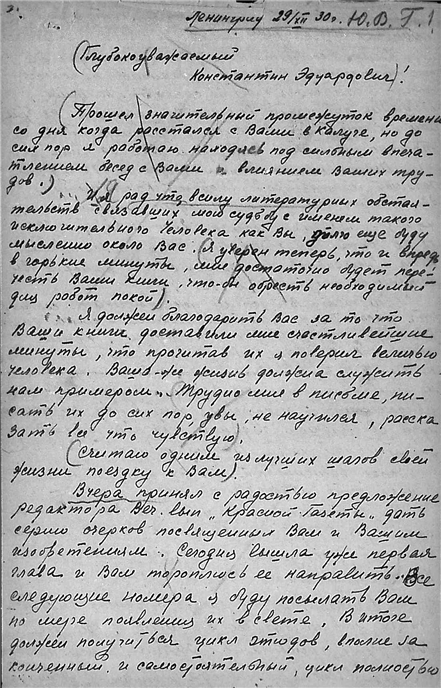 Ленинград 29/XII 30г. Ю.В.Г.
(Глубокоуважаемый
Константин Эдуардович)!
(Прошел значительный промежуток времени
со дня когда расстался с Вами в Калуге, но до
сих пор я работаю находясь под сильным впеча-
тлением бесед с Вами и влиянием Ваших тру-
дов.)
... И я рад что в силу литературных обстоя-
тельств связавших мою судьбу с именем такого
исключительного Человека как Вы, долго еще буду
мысленно около Вас. (Я уверен теперь, что и впредь
в горькие минуты, мне достаточно будет пере-
честь Ваши книги, что-бы обресть необходимый
для работ покой).
... Я должен благодарить Вас за то что
Ваши книги доставили мне счастливейшие
минуты, что прочитав их я поверил величью
человека. Ваша-же жизнь должна служить
нам примером. Трудно мне в письме, пи-
сать их до сих пор, увы, не научился, расска
зать все что чувствую.
(Считаю одним из лучших шагов своей
жизни поездку к Вам).
Вчера принял с радостью предложение
редактора Веч. вып. „Красной Газеты" дать
серию очерков посвященных Вам и Вашим
изобретениям. Сегодня вышла уже первая
глава и Вам тороплюсь ее направить. Все
следующие номера я буду посылать Вам
по мере появления их в свете. В итоге
должен получиться цикл этюдов, вполне за
конченный и самостоятельный, цикл полностью